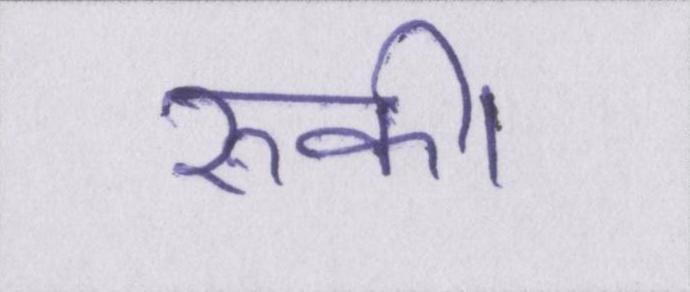 रुकी।